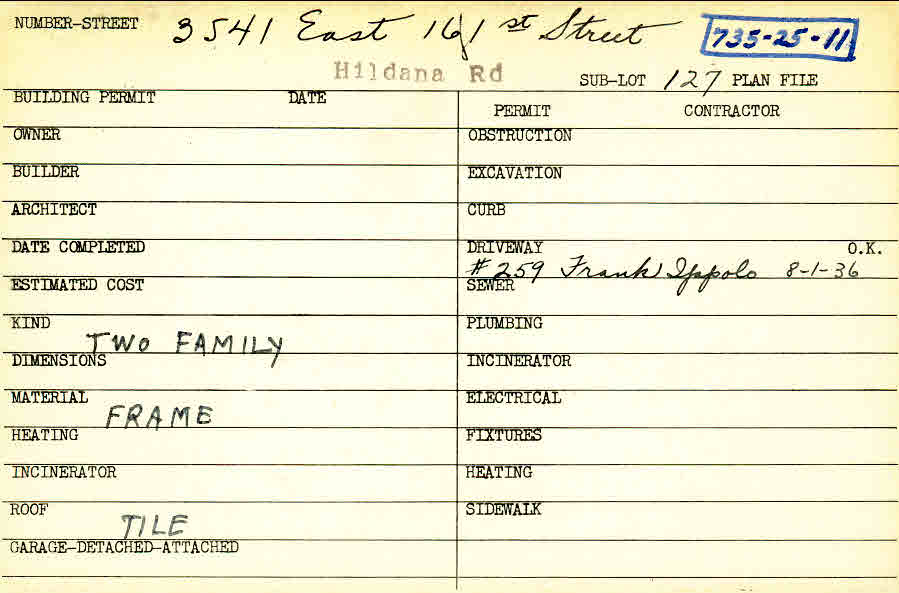 NUMBER-STREET 3541 East 161st Street 735-25-11
Hildana Rd SUB-LOT 127 PLAN FILE
BUILDING PERMIT DATE
PERMIT CONTRACTOR
OWNER OBSTRUCTION
BUILDER EXCAVATION
ARCHITECT CURB
DATE COMPLETED DRIVEWAY O.K.
#259 Frank Ippolo 8-1-36
ESTIMATED COST SEWER
KIND TWO FAMILY PLUMBING
DIMENSIONS INCINERATOR
MATERIAL FRAME ELECTRICAL
HEATING FIXTURES
INCINERATOR HEATING
ROOF TILE SIDEWALK
GARAGE-DETACHED-ATTACHED